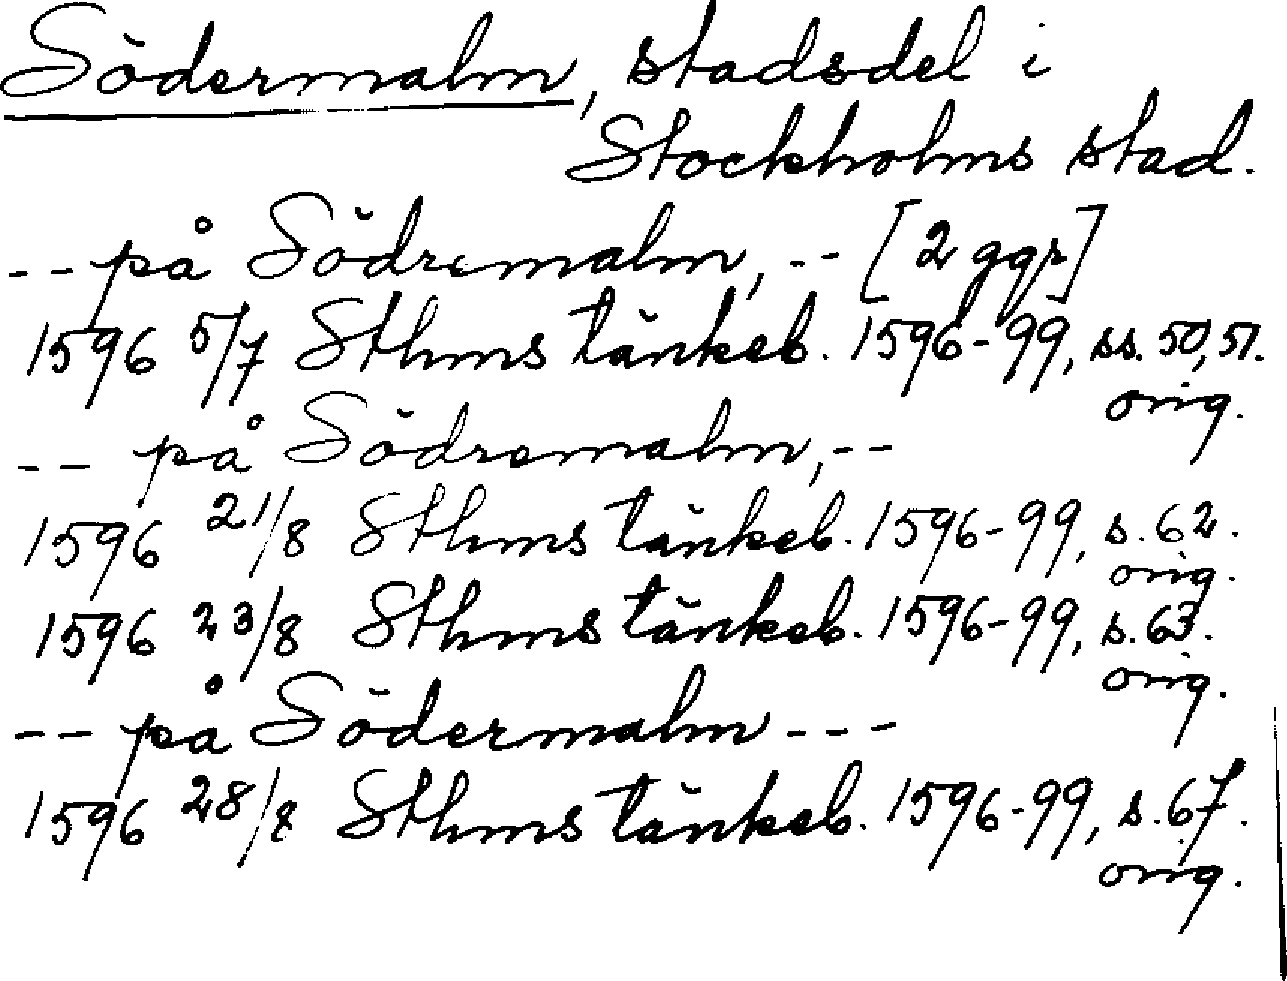 Södermalm, stadsdel i
Stockholms stad.
-- på Södremalm, -- [2 ggr]
1596 5/7 Sthms tänkeb. 1596-99, ss. 50, 51.
orig.
-- på Södremalm, --
1596 21/8 Sthms tänkeb. 1596-99, s. 62.
orig.
1596 23/8 Sthms tänkeb. 1596-99, s. 63.
orig.
-- på Södermalm ---
1596 28/8 Sthms tänkeb. 1596-99, s. 67.
orig.